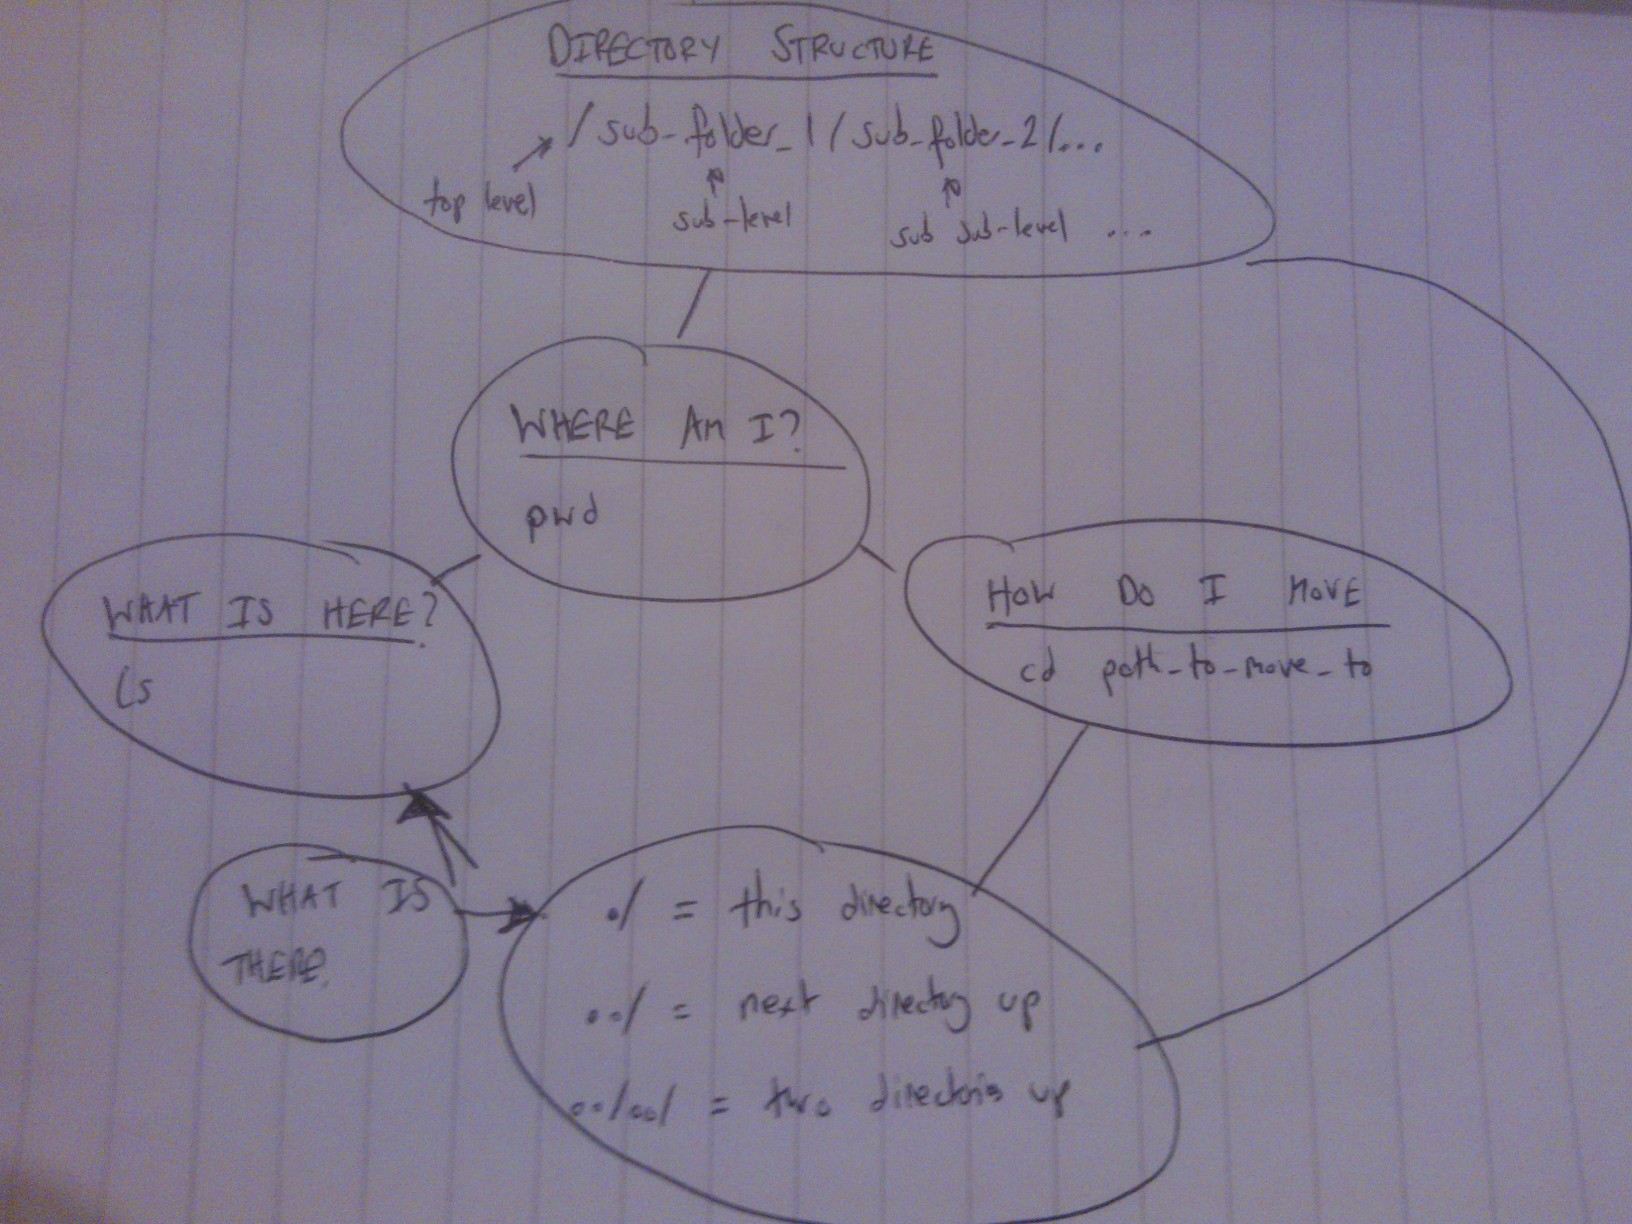 DIRECTORY STRUCTURE
/ sub-folder_1 / sub-folder_2 /...
top level
sub-level
sub sub-level ...
WHERE AM I?
pwd
WHAT IS HERE?
ls
HOW DO I MOVE
cd path_to_move_to
WHAT IS
THERE.
./ = this directory
../ = next directory up
../../ = two directories up